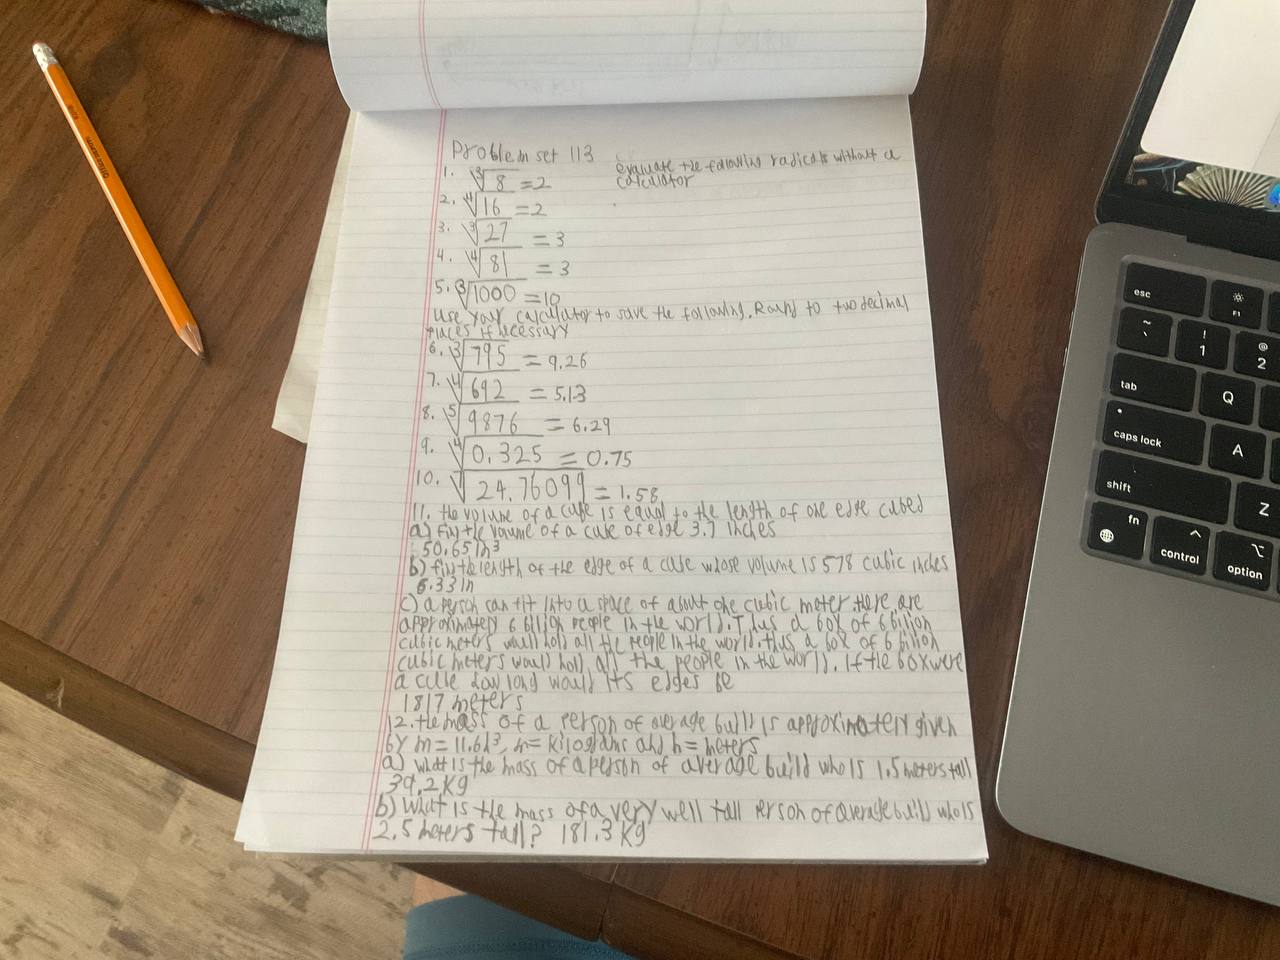 Problem set 113
evaluate the following radicals without a
calculator
1. ∛8 = 2
2. ∜16 = 2
3. ∛27 = 3
4. ∜81 = 3
5. ∛1000 = 10
use your calculator to save the following. Round to two decimal
places if necessary
6. ∛795 = 9.26
7. ∜692 = 5.13
8. ⁵√9876 = 6.29
9. ∜0.325 = 0.75
10. ⁷√24.76099 = 1.58
11. the volume of a cube is equal to the length of one edge cubed
a) fin the volume of a cube of edge 3.7 inches
50.65 in³
b) fin the length of the edge of a cube whose volume is 578 cubic inches
8.33 in
c) a person can fit into a space of about one cubic meter there are
approximately 6 billion people in the world. Thus a box of 6 billion
cubic meters would hold all the people in the world. thus a box of 6 billion
cubic meters would hold all the people in the world. If the box were
a cube how long would its edges be
1817 meters
12. the mass of a person of average build is approximately given
by m = 11.6h³, m = kilograms and h = meters
a) what is the mass of a person of average build who is 1.5 meters tall
39.2 kg
b) What is the mass of a very well tall person of average build who is
2.5 meters tall? 181.3 kg
esc
F1
~
`
!
1
@
2
tab
Q
caps lock
A
shift
Z
fn
control
option